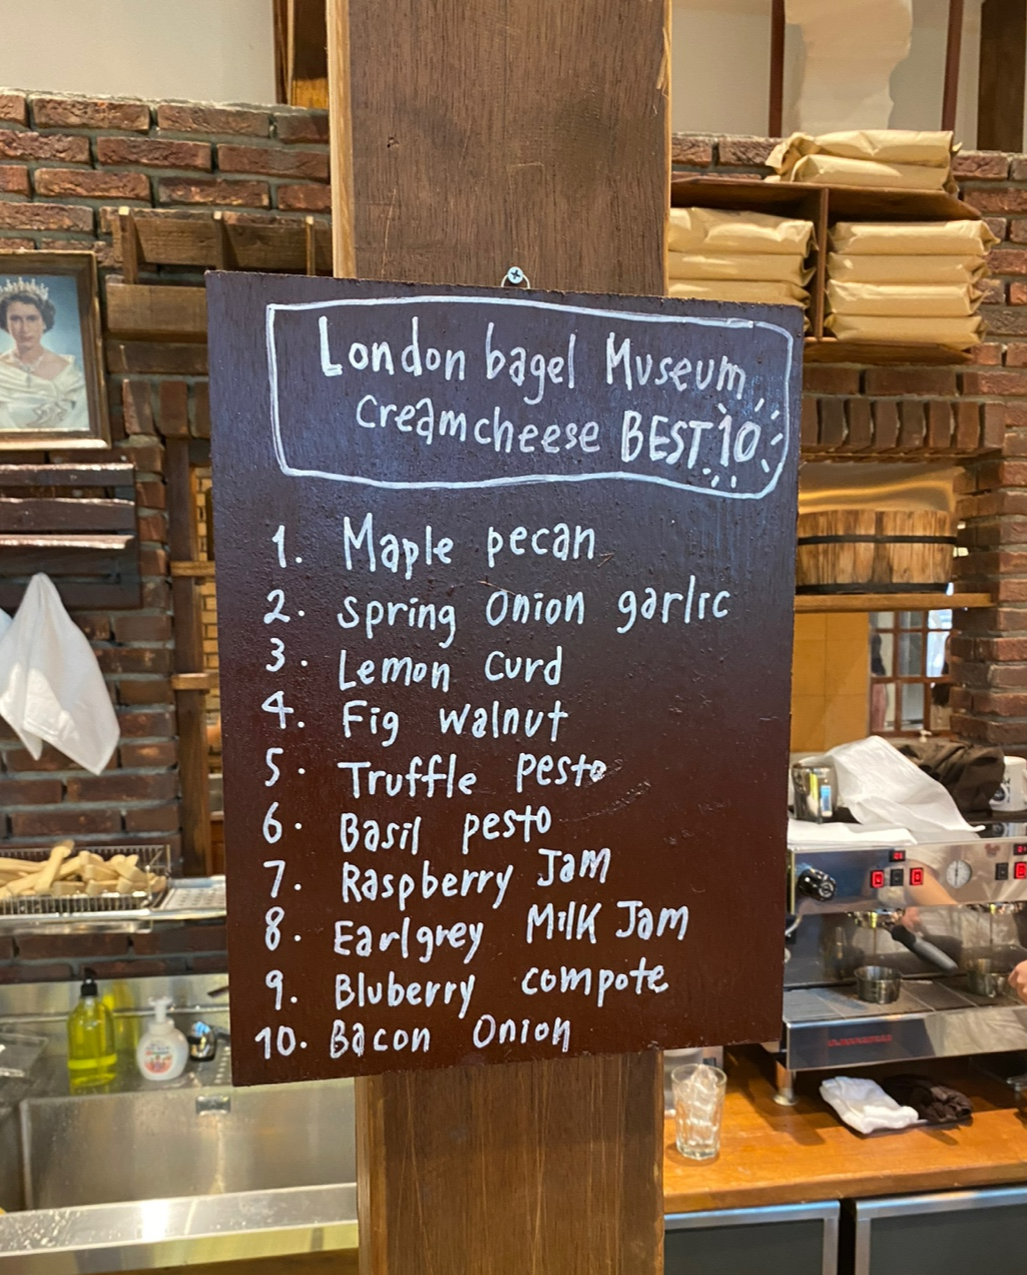 London bagel Museum
Creamcheese BEST 10
1. Maple pecan
2. Spring Onion garlic
3. Lemon Curd
4. Fig walnut
5. Truffle pesto
6. Basil pesto
7. Raspberry Jam
8. Earlgrey Milk Jam
9. Bluberry compote
10. Bacon Onion